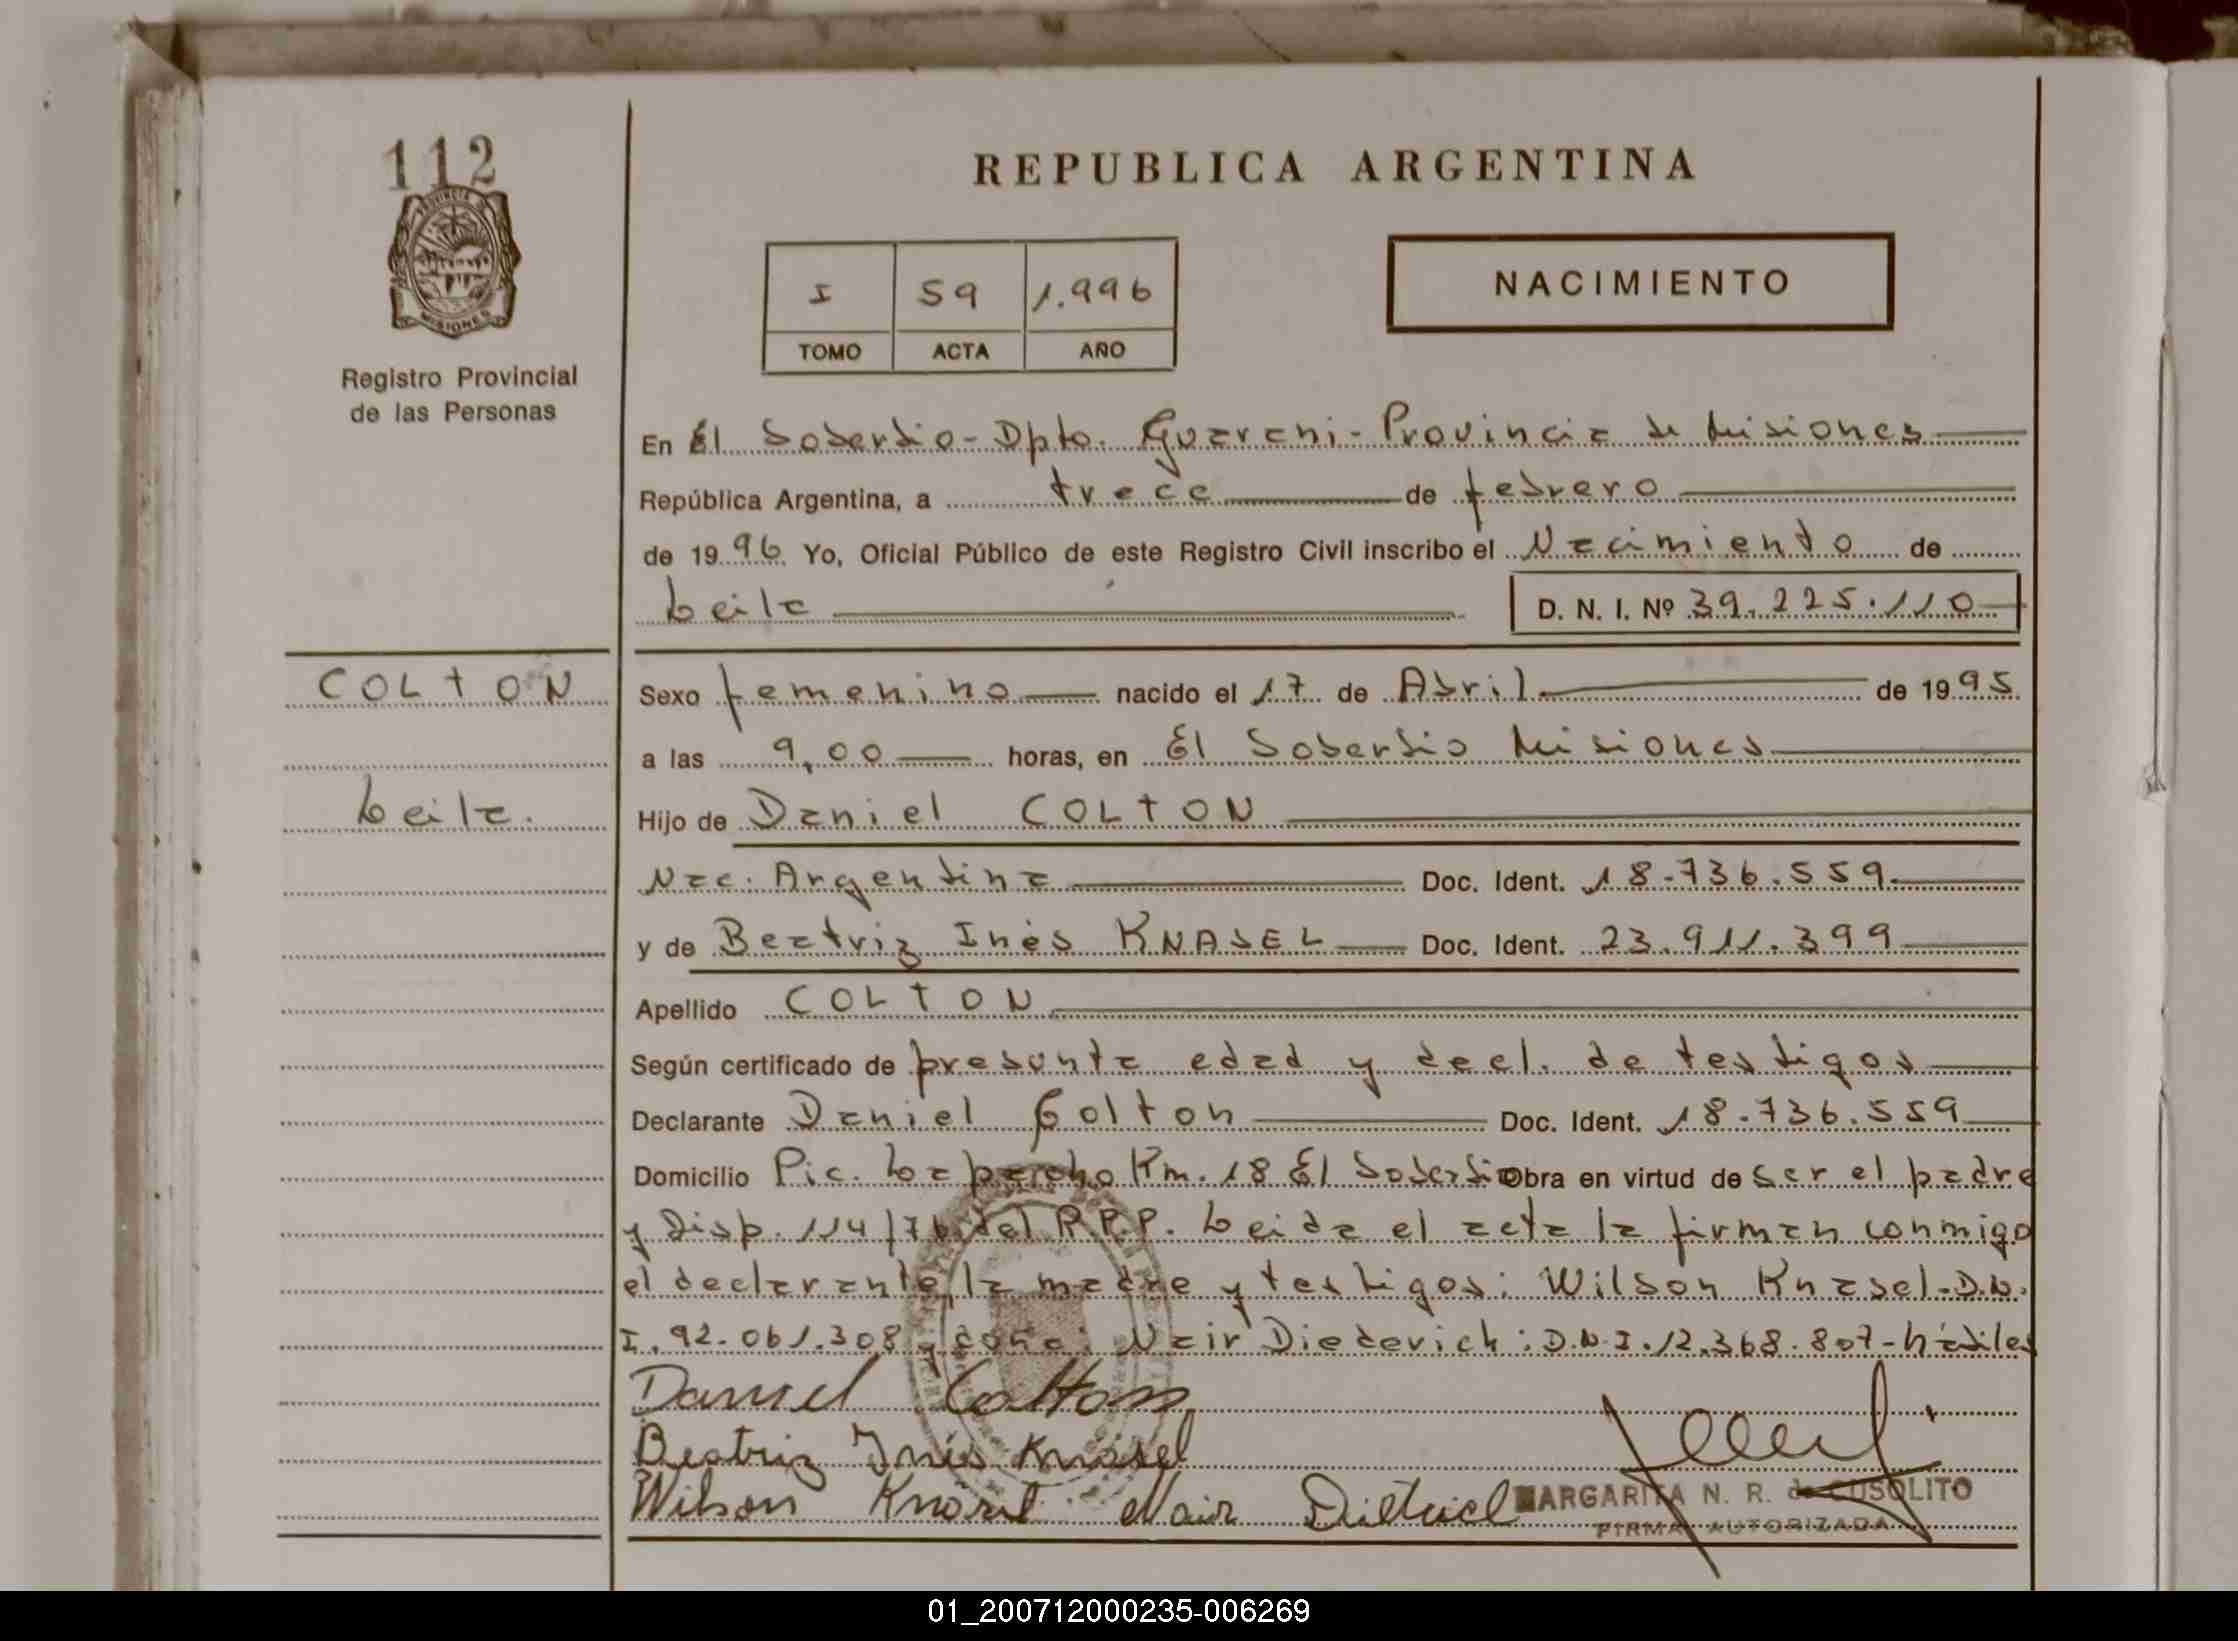 112
PROVINCIA
MISIONES
Registro Provincial
de las Personas
REPUBLICA ARGENTINA
I 59 1.996
TOMO ACTA AÑO
NACIMIENTO
En El Soberbio - Dpto. Guarani - Provincia de Misiones
República Argentina, a trece de febrero
de 1996 Yo, Oficial Público de este Registro Civil inscribo el Nacimiento de
Leila D. N. I. Nº 39.225.110
COLTON
Leila.
Sexo femenino nacido el 17 de Abril de 1995
a las 9,00 horas, en El Soberbio Misiones
Hijo de Daniel COLTON
Nac. Argentina Doc. Ident. 18.736.559
y de Beatriz Inés KNASEL Doc. Ident. 23.911.399
Apellido COLTON
Según certificado de presunta edad y decl. de testigos
Declarante Daniel Colton Doc. Ident. 18.736.559
Domicilio Pic. Lapacho Km. 18 El Soberbio Obra en virtud de ser el padre
y Disp. 114/76 del R.P.P. Leida el acta la firman conmigo
el declarante, la madre y testigos: Wilson Knasel - D.N.
I. 92.061.308 y doña: Nair Diederich: D.N.I. 12.368.807 - hábiles
Daniel Colton
Beatriz Inés Knasel
Wilson Nair
MARGARITA N. R. de CUSOLITO
FIRMA AUTORIZADA
01_200712000235-006269